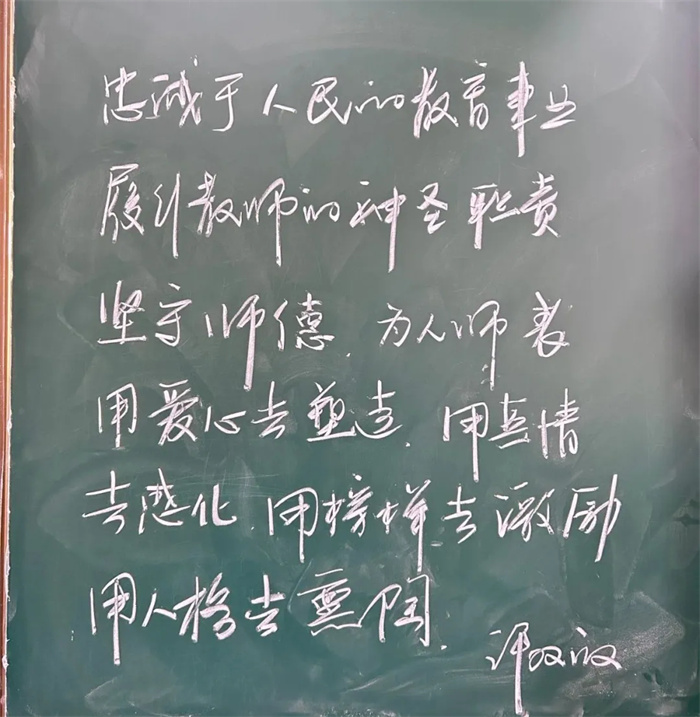 忠诚于人民的教育事业
履行教师的神圣职责
坚守师德、为人师表
用爱心去塑造、用真情
去感化、用榜样去激励
用人格去熏陶。